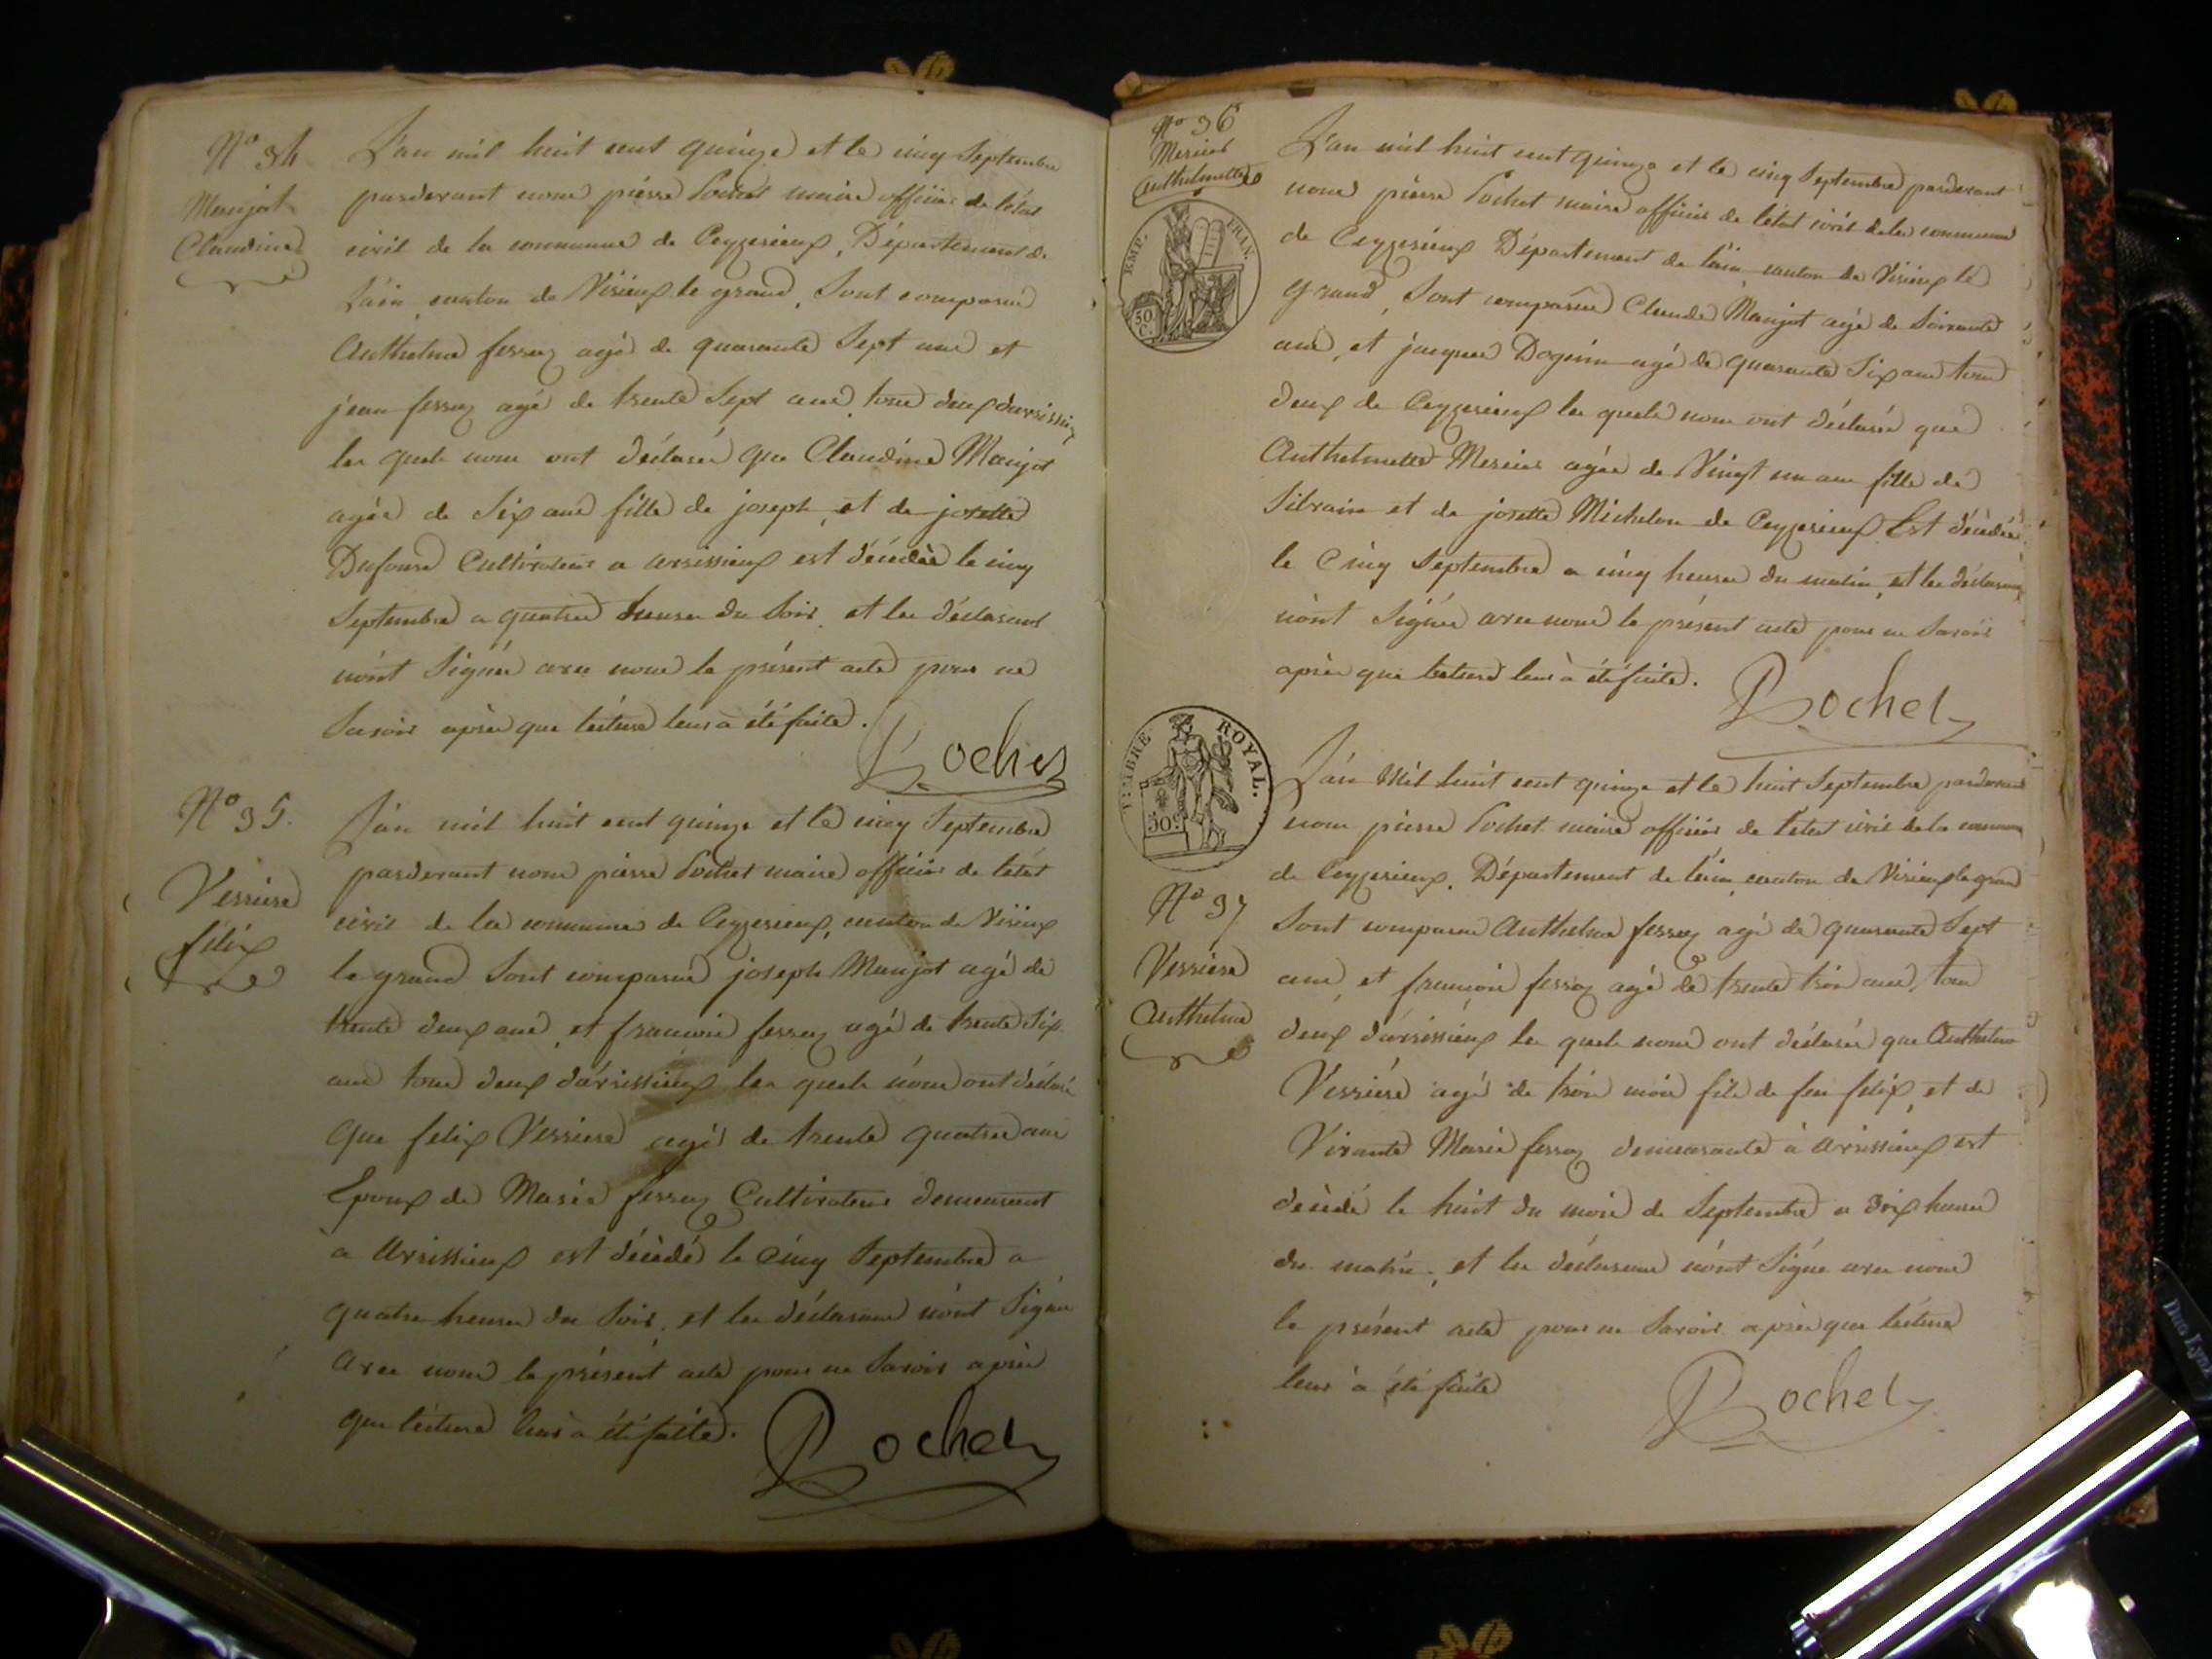 N.o 34
Manjot
Claudine
L'an mil huit cent quinze et le cinq Septembre
pardevant nous pierre Pochet maire officier de létat
civil de la commune de Ceyzerieux, Département de
L'ain canton de Virieux le grand, Sont comparus
Anthelme ferroz agé de quarante Sept ans et
jean ferroz agé de trente Sept ans tous deux d'arvissieux
les quels nous ont déclaré que Claudine Manjot
agée de Six ans fille de joseph, et de josette
Dufour Cultivateur a arvissieux est décédée le cinq
Septembre a quatre heures du Soir, et les déclarant
n'ont Signés avec nous le présent acte pour ne
Savoir après que lecture leur à été faite.
Pochet
N.o 35.
Verriere
felix
L'an mil huit cent quinze et le cinq Septembre
pardevant nous pierre Pochet maire officier de létat
civil de la commune de Ceyzerieux, canton de Virieux
le grand Sont comparus joseph Manjot agé de
trente deux ans, et francois ferroz agé de trente Six
ans tous deux d'arvissieux les quels nous ont déclaré
que felix Verriere agé de trente quatre ans
Epoux de Marie ferroz Cultivateur demeurant
a Arvissieux est décédé le Cinq Septembre a
quatre heures du Soir, et les déclarans n'ont Signés
avec nous le présent acte pour ne Savoir après
que lecture leur a été faitte.
Pochet
N.o 36
Mercier
Anthelmette
EMP. FRAN.
50 C.
L'an mil huit cent quinze et le cinq Septembre pardevant
nous pierre Pochet maire officier de létat civil de la commune
de Ceyzerieux Département de l'ain canton de Virieux le
grand, Sont comparus Claude Manjot agé de Soixante
ans, et jacques Dognin agé de quarante Six ans tous
deux de Ceyzerieux les quels nous ont déclaré que
Anthelmette Mercier agée de Vingt un ans fille de
Silvain et de josette Michelon de Ceyzerieux Est décédée
le Cinq Septembre a cinq heures du matin, et les déclarans
n'ont Signés avec nous le présent acte pour ne Savoir
après que lecture leur à été faite.
Pochet
TIMBRE ROYAL.
50 C.
N.o 37
Verriere
Anthelme
L'an Mil huit cent quinze et le huit Septembre pardevant
nous pierre Pochet maire officier de létat civil de la commune
de Ceyzerieux, Département de l'ain, canton de Virieux le grand
Sont comparus Anthelme ferroz agé de quarante Sept
ans, et francois ferroz agé de trente trois ans, tous
deux d'arvissieux les quels nous ont déclaré que Anthelme
Verriere agé de trois mois fils de feu felix, et de
Vivante Marie ferroz demeurante à arvissieux est
décédé le huit du mois de Septembre a dix heures
du matin, et les déclarans n'ont Signé avec nous
le présent acte pour ne Savoir après que lecture
leur à été faite
Pochet